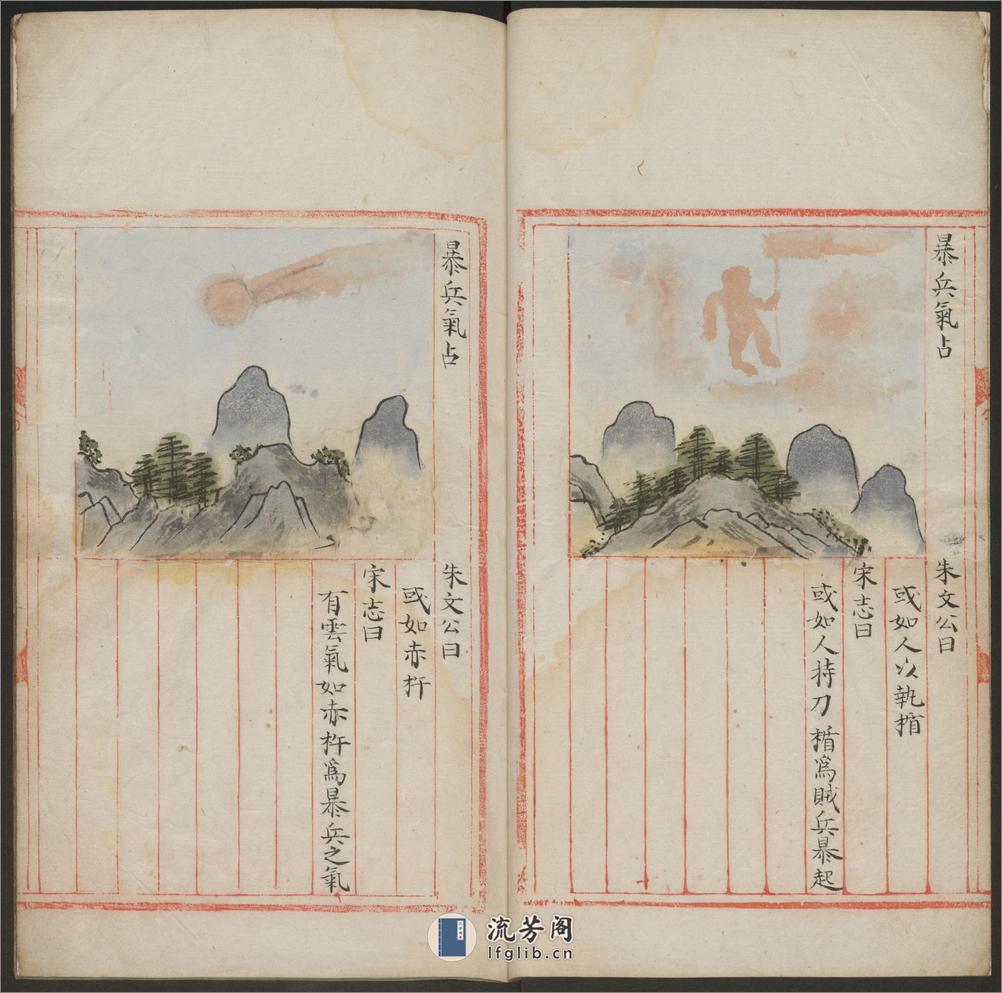 暴兵氣占
朱文公曰
或如人以執楯
宋志曰
或如人持刀楯為賊兵暴起
暴兵氣占
朱文公曰
或如赤杵
宋志曰
有雲氣如赤杵為暴兵之氣
流芳阁
lfglib.cn